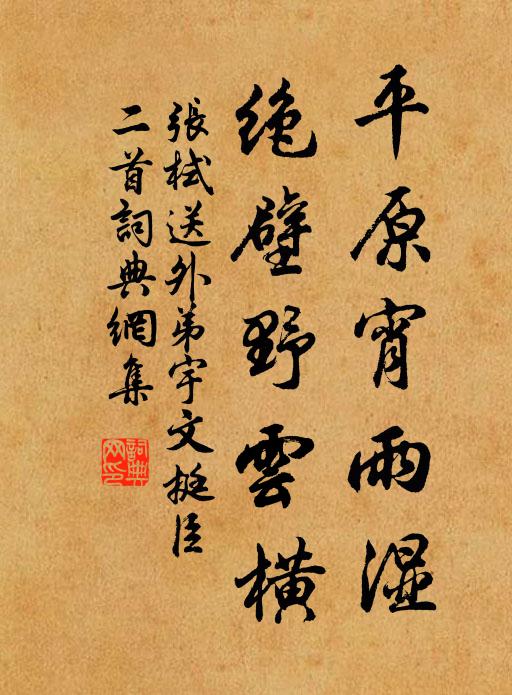 平原宵雨湿
绝壁野雲横
張栻送外弟宇文挺臣
二首詞典網集
詞典网印